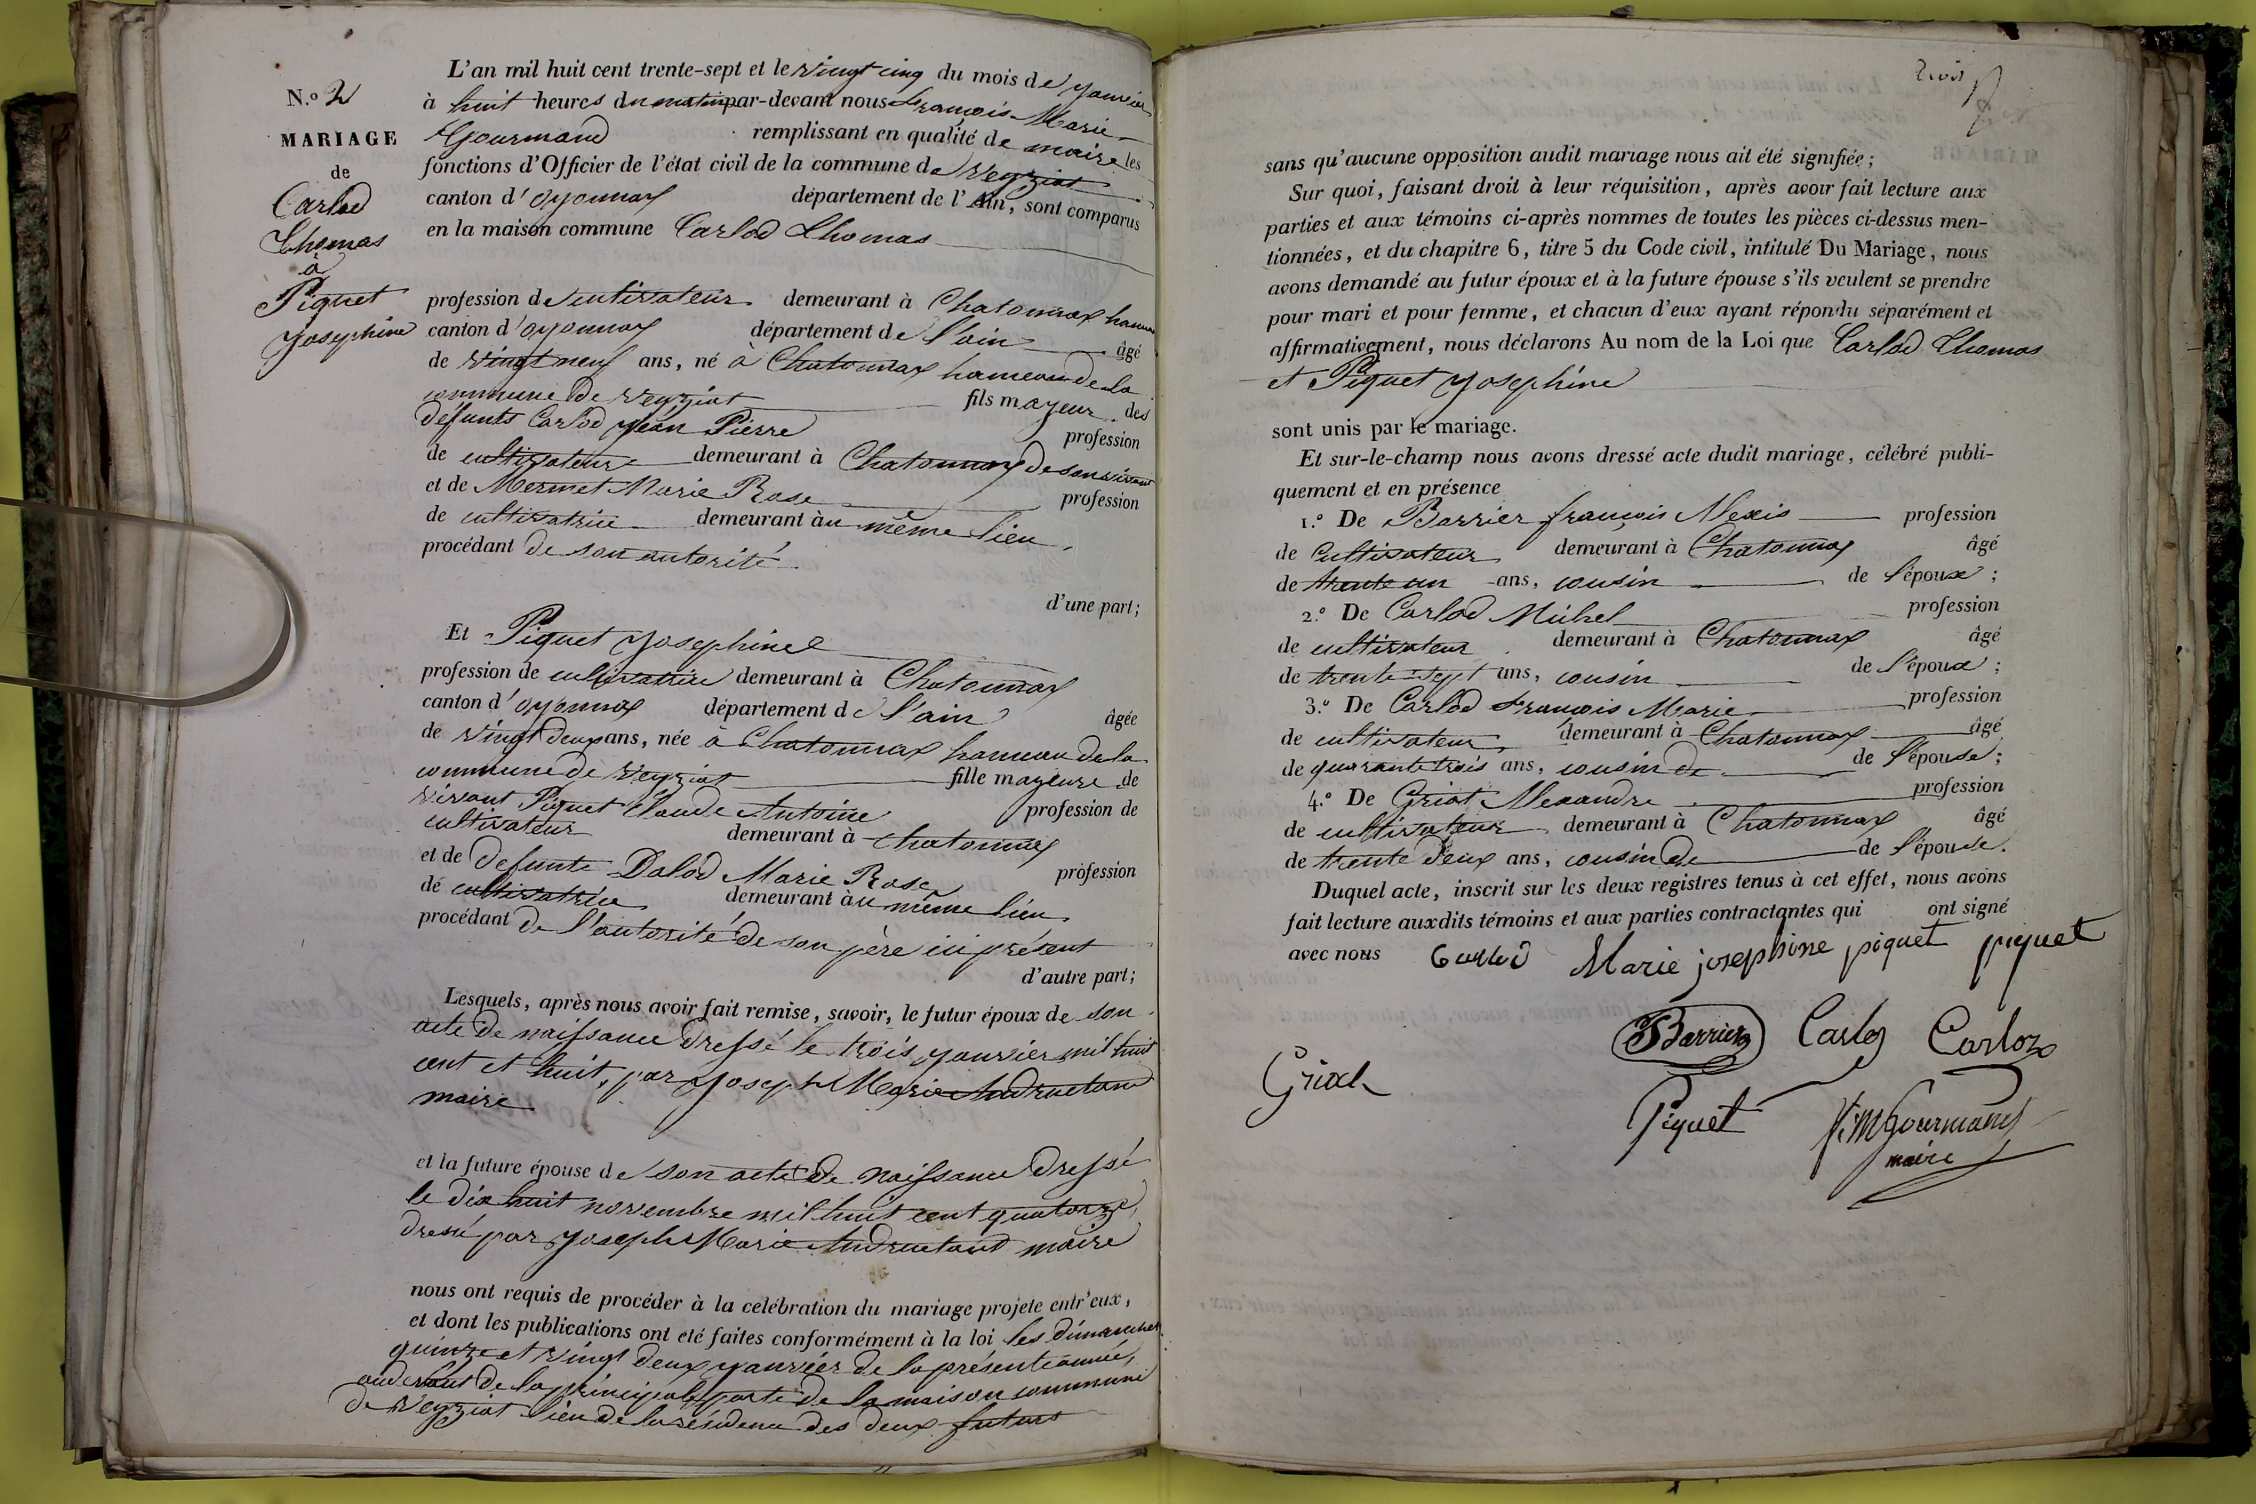 N.o 2
MARIAGE
de
Carlod
Thomas
à
Piquet
Josephine
L'an mil huit cent trente-sept et le vingt cinq du mois de Janvier
à huit heures du matin par-devant nous François Marie
Gourmand remplissant en qualité de maire les
fonctions d'Officier de l'état civil de la commune de Veyziat
canton d'oyonnax département de l'Ain, sont comparus
en la maison commune Carlod Thomas
profession de cultivateur demeurant à Chatonnax hameau
canton d'oyonnax département de l'ain âgé
de vingt neuf ans, né à Chatonnax hameau de la
commune de Veyziat fils mayeur des
defunts Carlod Jean Pierre profession
de cultivateur demeurant à Chatonnax de son vivant
et de Mermet Marie Rose profession
de cultivatrice demeurant au même lieu,
procédant de son autorité
d'une part;
Et Piquet Josephine
profession de cultivatrice demeurant à Chatonnax
canton d'oyonnax département de l'ain âgée
de vingt deux ans, née à Chatonnax hameau de la
commune de Veyziat fille mayeure de
vivant Piquet Claude Antoine profession de
cultivateur demeurant à chatonnax
et de defunte Dalod Marie Rose profession
de cultivatrice demeurant au même lieu
procédant de l'autorité de son père ici présent
d'autre part;
Lesquels, après nous avoir fait remise, savoir, le futur époux de son
acte de naissance dressé le trois Janvier mil huit
cent et huit, par Joseph Marie Andructand
maire
et la future épouse de son acte de naissance dressé
le dix huit novembre mil huit cent quatorze,
dressé par Joseph Marie Andructand maire
nous ont requis de procéder à la celébration du mariage projete entr'eux,
et dont les publications ont eté faites conformément à la loi les dimanches
quinze et vingt deux Janvier de la présente année,
audevant de la principale porte de la maison commune
de Veyziat lieu de la résidence des deux futurs
trois
sans qu'aucune opposition audit mariage nous ait été signifiée;
Sur quoi, faisant droit à leur réquisition, après avoir fait lecture aux
parties et aux témoins ci-après nommes de toutes les pièces ci-dessus men-
tionnées, et du chapitre 6, titre 5 du Code civil, intitulé Du Mariage, nous
avons demandé au futur époux et à la future épouse s'ils veulent se prendre
pour mari et pour femme, et chacun d'eux ayant répondu séparément et
affirmativement, nous déclarons Au nom de la Loi que Carlod Thomas
et Piquet Josephine
sont unis par le mariage.
Et sur-le-champ nous avons dressé acte dudit mariage, célébré publi-
quement et en présence
1.o De Barrier françois Alexis profession
de Cultivateur demeurant à Chatonnax âgé
de trente un ans, cousin de l'époux;
2.o De Carlod Michel profession
de cultivateur demeurant à Chatonnax âgé
de trente sept ans, cousin de l'époux;
3.o De Carlod François Marie profession
de cultivateur, demeurant à Chatonnax âgé
de quarante trois ans, cousin de de l'épouse;
4.o De Griot Alexandre profession
de cultivateur demeurant à Chatonnax âgé
de trente deux ans, cousin de de l'épouse.
Duquel acte, inscrit sur les deux registres tenus à cet effet, nous avons
fait lecture auxdits témoins et aux parties contractantes qui ont signé
avec nous Carlod Marie josephine piquet piquet
Barrier Carlod Carloz
Griot
Piquet f. M Gourmand
maire